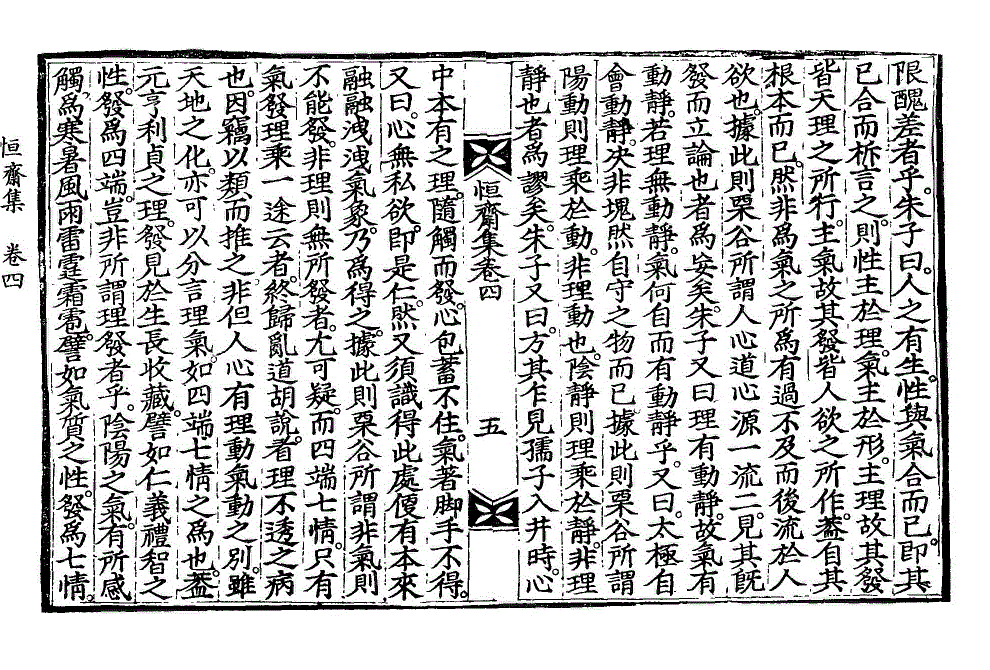 限醜差者乎。朱子曰。人之有生。性與氣合而已。即其
已合而析言之。則性主於理。氣主於形。主理故其發
皆天理之所行。主氣故其發皆人欲之所作。蓋自其
根本而已。然非爲氣之所爲有過不及而後流於人
欲也。據此則栗谷所謂人心道心源一流二。見其旣
發而立論也者爲妄矣。朱子又曰理有動靜。故氣有
動靜。若理無動靜。氣何自而有動靜乎。又曰。太極自
會動靜。决非塊然自守之物而已。據此則栗谷所謂
陽動則理乘於動。非理動也。陰靜則理乘於靜。非理
靜也者爲謬矣。朱子又曰。方其乍見孺子入井時。心
恒齋集卷四
五
中本有之理。隨觸而發。心包蓄不住。氣著脚手不得。
又曰。心無私欲。即是仁。然又須識得此處便有本來
融融洩洩氣象。乃爲得之。據此則栗谷所謂非氣則
不能發。非理則無所發者。尤可疑。而四端七情只有
氣發理乘一途云者。終歸亂道胡說。者理不透之病
也。因竊以類而推之。非但人心有理動氣動之別。雖
天地之化。亦可以分言理氣。如四端七情之爲也。蓋
元亨利貞之理。發見於生長收藏。譬如仁義禮智之
性。發爲四端。豈非所謂理發者乎。陰陽之氣。有所感
觸。爲寒暑風雨雷霆霜雹。譬如氣質之性。發爲七情。
恒齋集　卷四